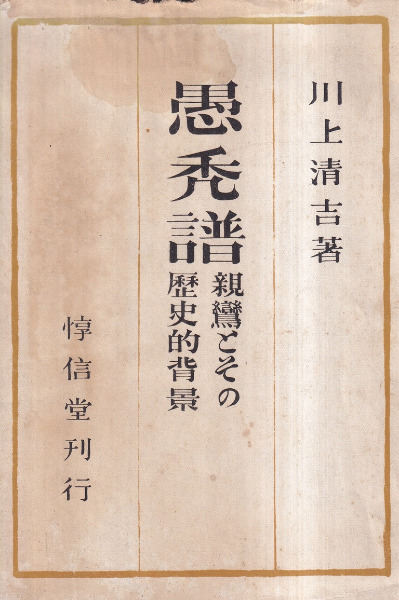 川上清吉著
愚禿譜
親鸞とその
歴史的背景
惇信堂刊行